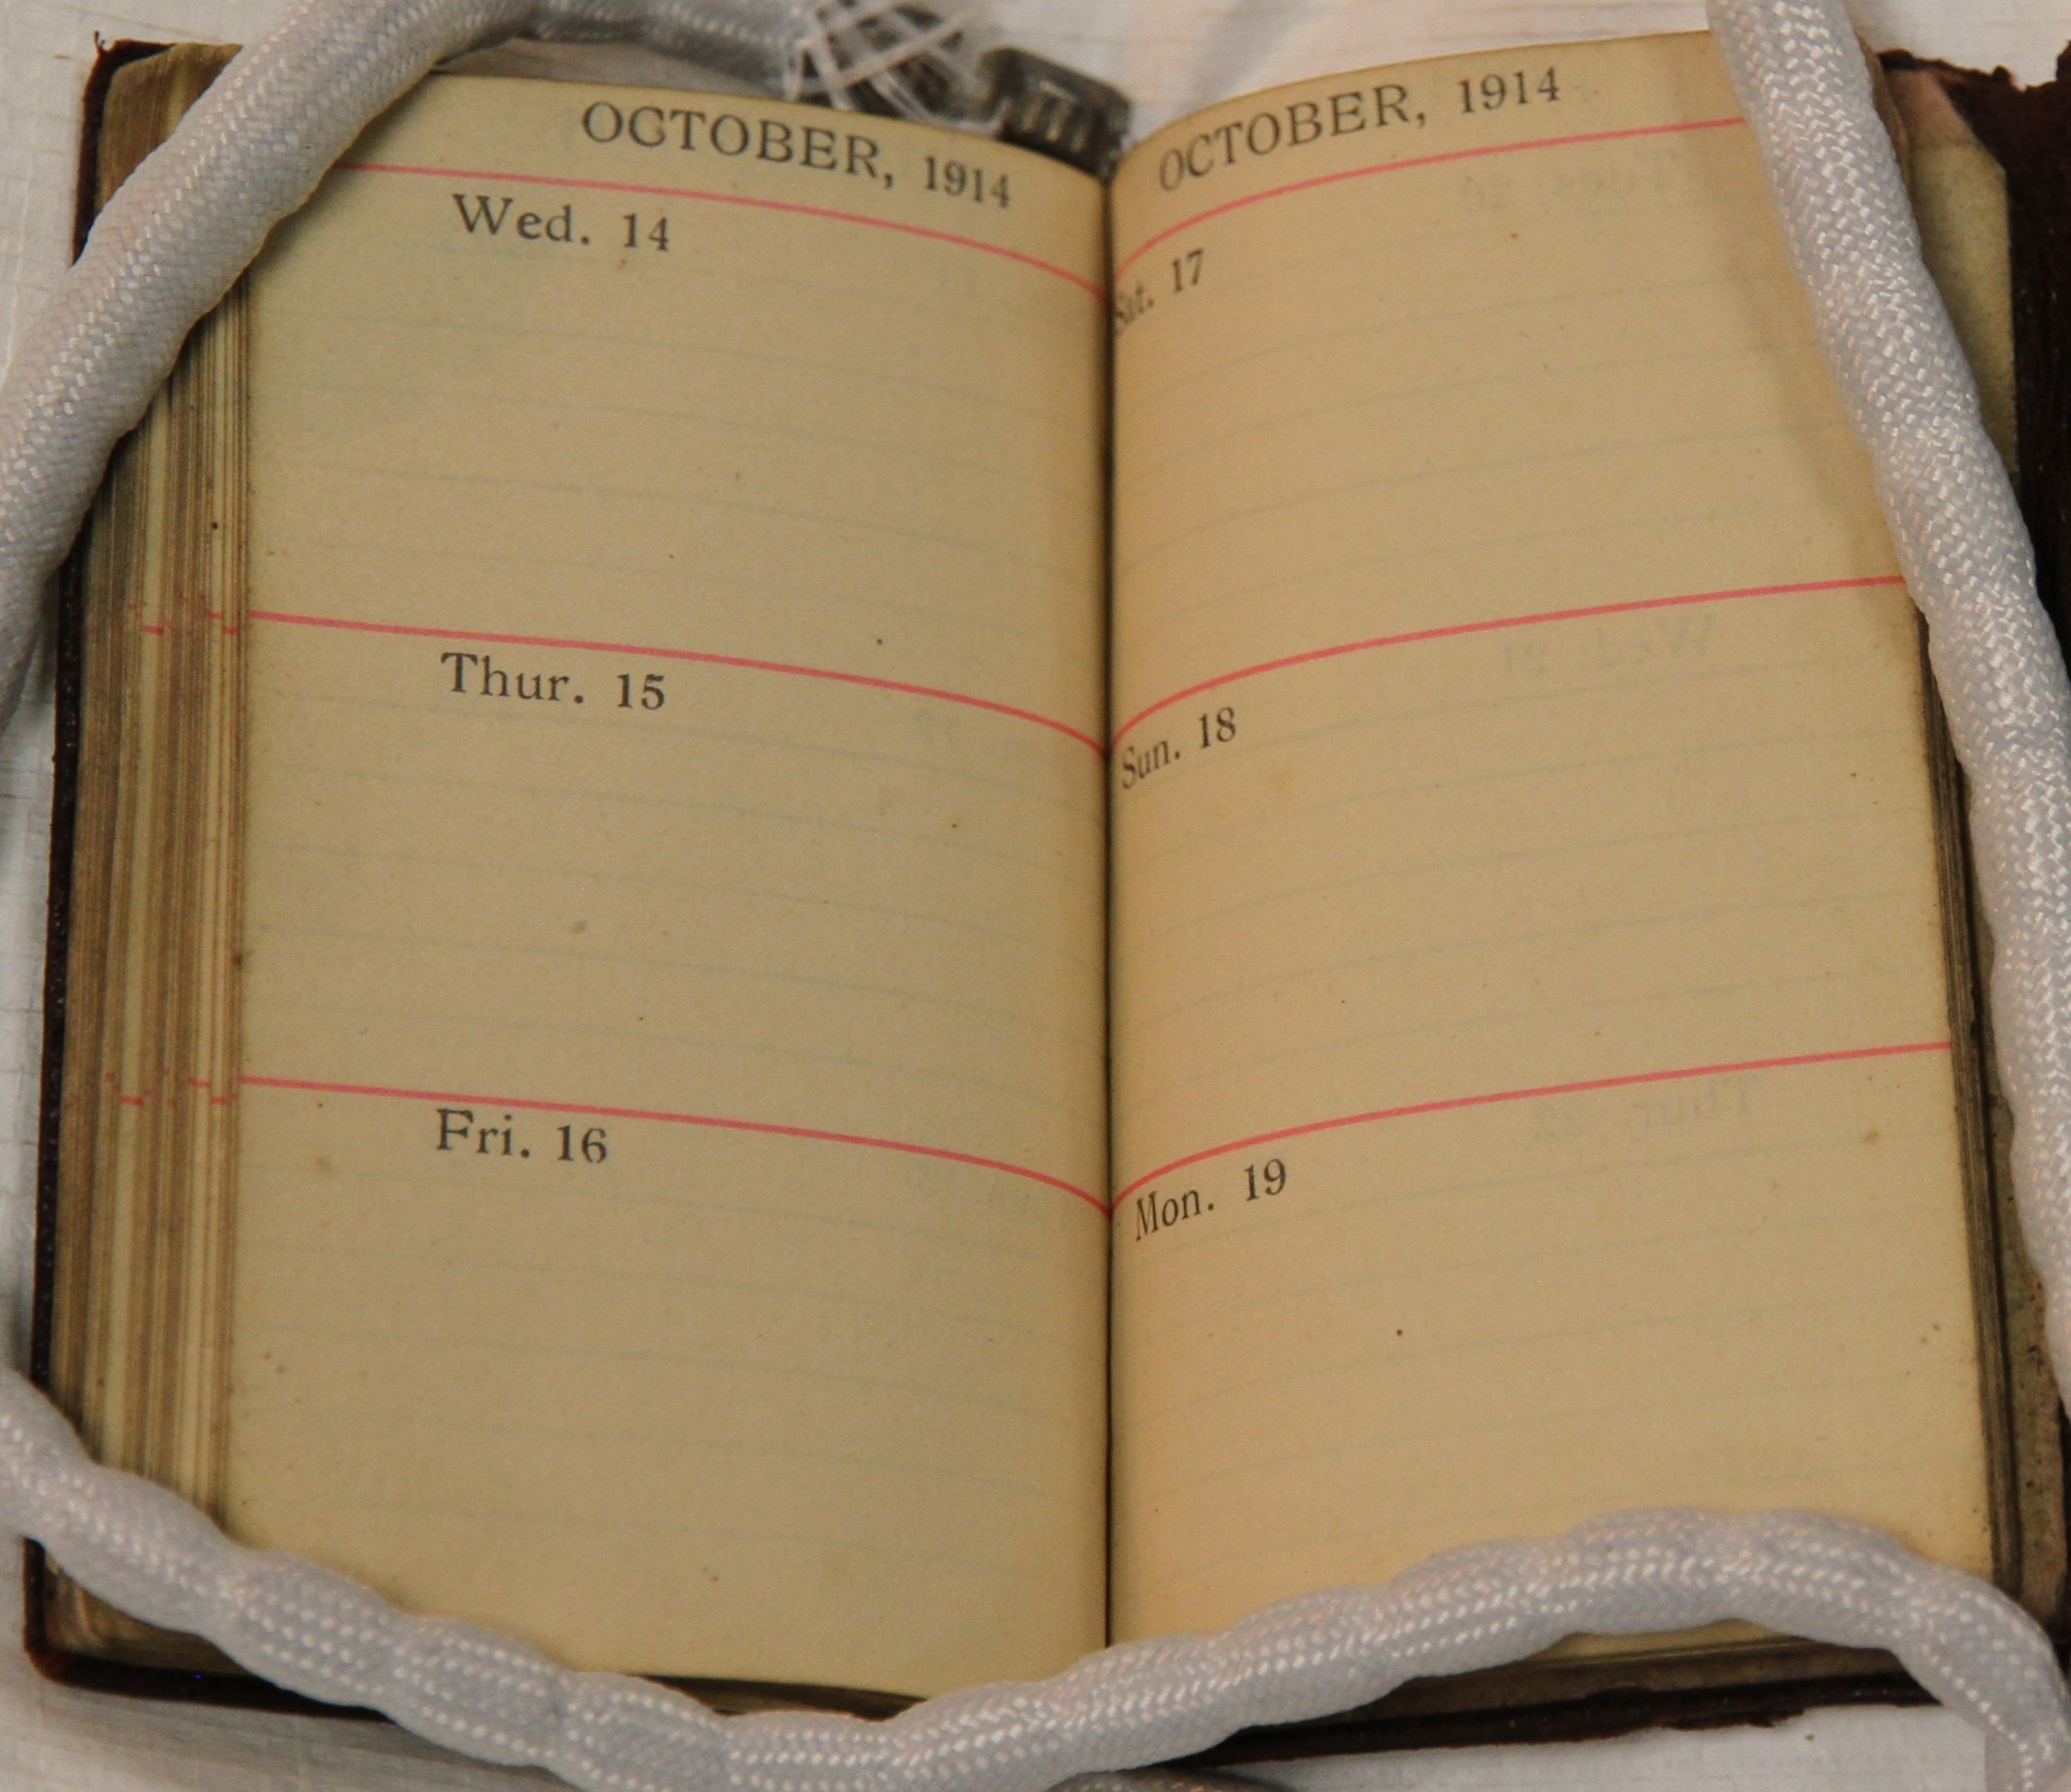 OCTOBER, 1914
Wed. 14
Thur. 15
Fri. 16
OCTOBER, 1914
Sat. 17
Sun. 18
Mon. 19